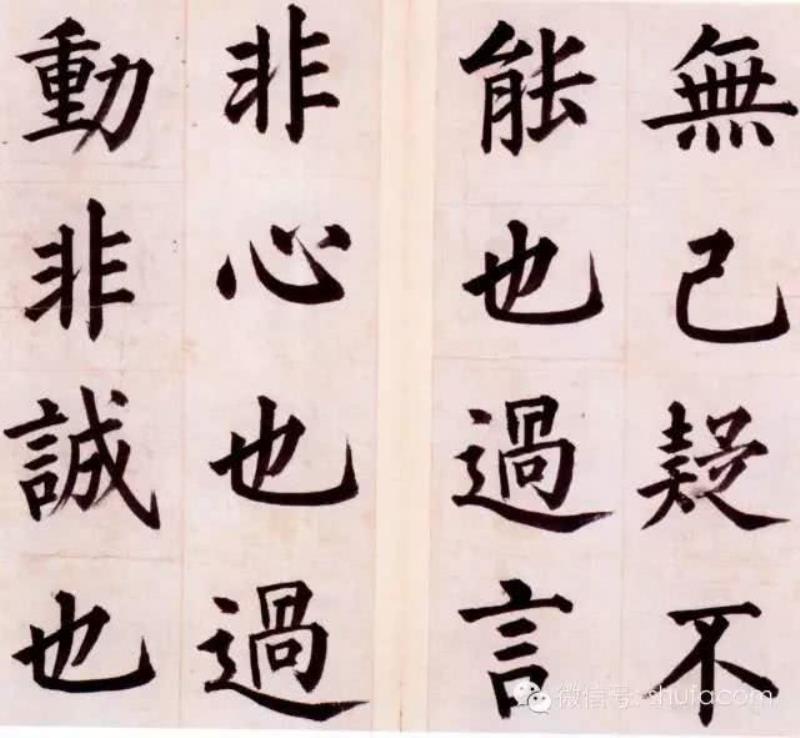 無己疑不
能也過言
非心也過
動非誠也
微信号: shufacom